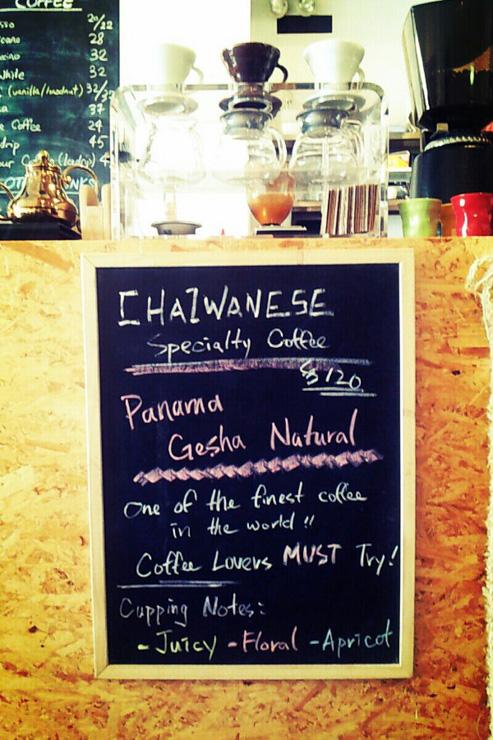 COFFEE
20/22
28
32
White 32
(vanilla/hazelnut) 32/37
37
Coffee 24
drip 45
[HAZWANESE
Specialty Coffee
$120
Panama
Gesha Natural
One of the finest coffee
in the world!!
Coffee Lovers MUST Try!
Cupping Notes:
- Juicy - Floral - Apricot